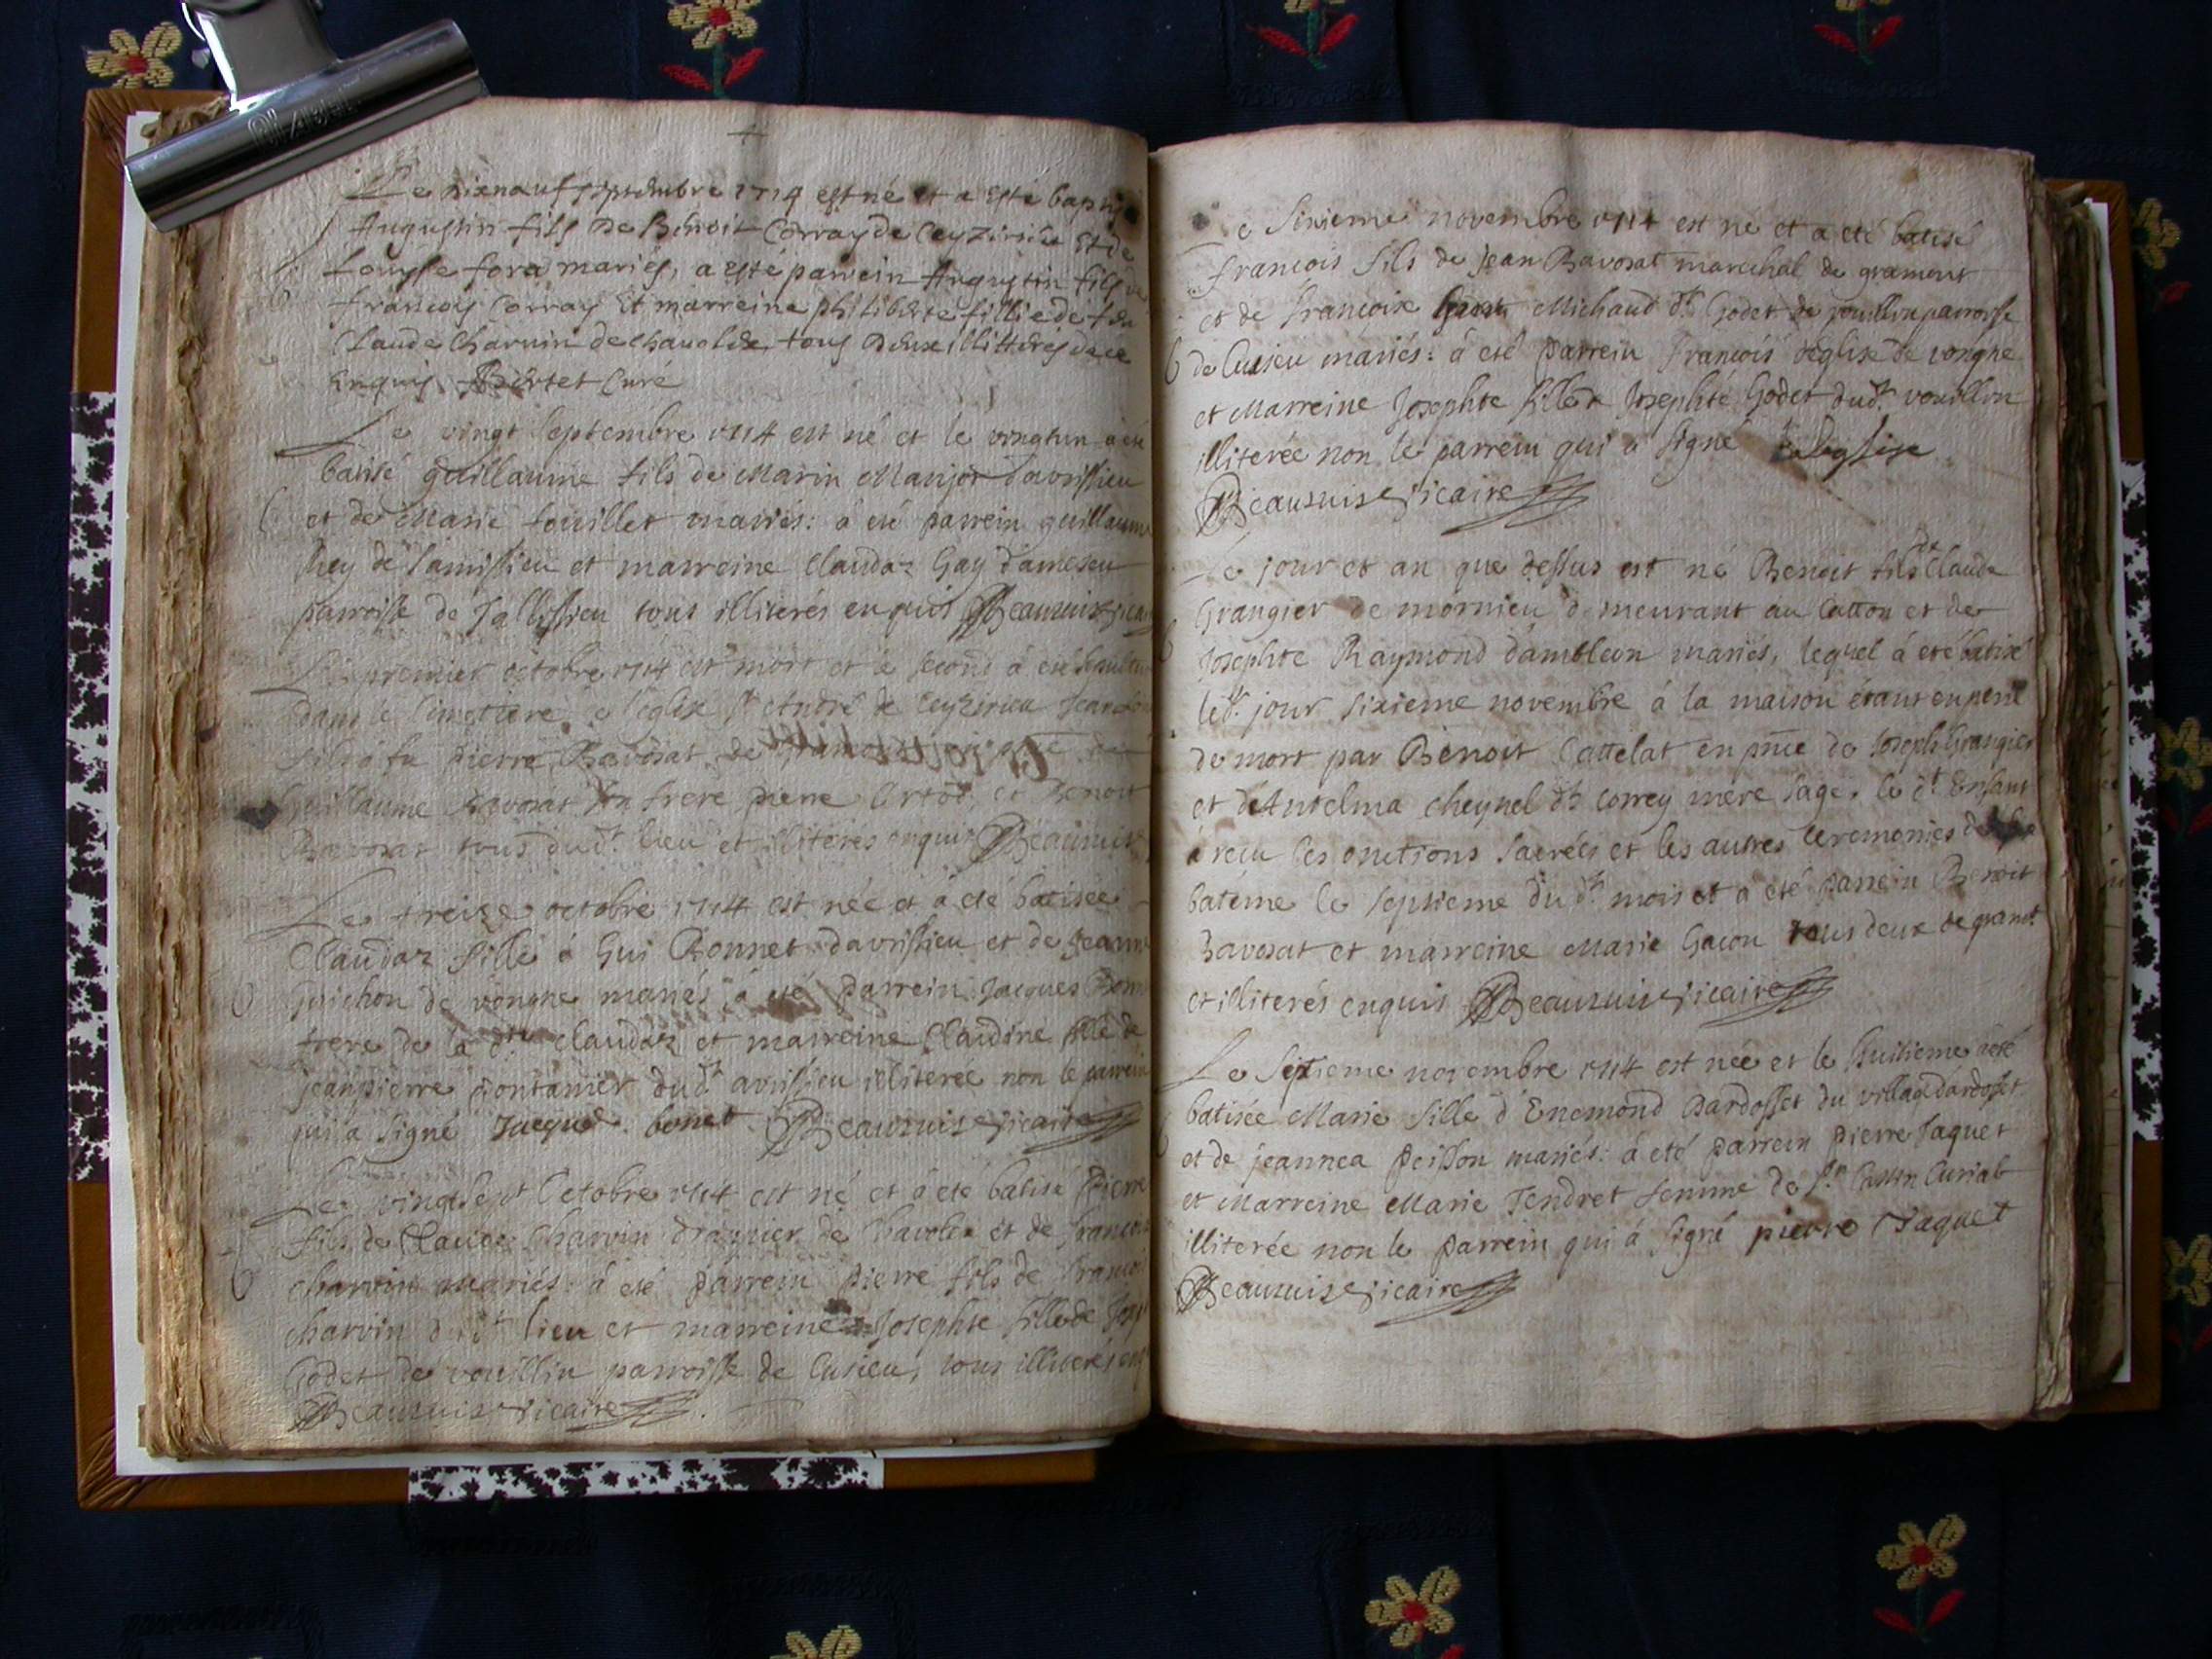 Le dixnauf septembre 1714 est né et a esté bapti
Augustin fils de Benoit Corray de Ceyzirieu Et de
Louyse fora mariés, a esté parrein Augustin fils
francois Corray Et marreine philiberte fillie de feu
Claude Charvin de chavolex tous deux illitterés de ce
Enquis. Bertet Curé
Le vingt septembre 1714 est né et le vingtun a été
batisé guillaume fils de Marin Manjot d'avrissieu
et de Marie touillet mariés: á eté parrein guillaume
Rey de l'amissieu et marreine Claudaz Gay d'ameseu
parroisse de Tallissieu tous illiterés enquis Beauzuis
Le premier octobre 1714 est mort et le second á eté
dans le Cimettiere de l'église St André de Ceyzirieu
fils á fu pierre Ravorat de
Guillaume Ravorat son frere pierre et Benoit
Ravorat tous dudt lieu et illiterés enquis Beauzuis
Le treize octobre 1714 est née et á eté batisée
Claudaz fille á Gui Bonnet d'avrissieu et de Jeanne
Guichon de vongne mariés á eté parrein Jacques
frere de la dite Claudaz et marreine Claudine fille de
jeanpierre pontanier dudt avrissieu illiterée non le parrein
qui á signé Jacques bonet Beauzuis vicaire
Le vingtsept Octobre 1714 est né et á eté batisé Pierre
fils de Claude Charvin de Chavolex et de
charvin mariés: á eté parrein pierre fils de
charvin dudt lieu et marreine Josephte fille de
Godet de vouillin parroisse de Cusieu, tous illiterés
Beauzuis vicaire
Le Sixieme novembre 1714 est né et a eté batisé
francois fils de Jean Ravorat marechal de gramont
et de françoise Michaud dt Godet de vouillin parroisse
de Cusieu mariés: á eté parrein françois déglise de vongne
et Marreine Josephte fille á Josephte Godet dudt vouillin
illiterée non le parrein qui á signé
Beauzuis vicaire
Le jour et an que dessus est né Benoit fils de Claude
Grangier de mornieu demeurant au Catton et de
Josephte Raymond d'ambleon mariés, lequel á eté batisé
ledt jour sixieme novembre á la maison étant en peril
de mort par Benoit Cattelat en pnce de Joseph Grangier
et d'Antelma cheynel dt correy mere sage. le dt Enfant
á recu les onctions sacrées et les autres Ceremonies du
batême le septieme du dt mois et a eté parrein Benoit
Ravorat et marreine Marie Gacon tous deux de gramt
et illiterés enquis Beauzuis vicaire
Le Septieme novembre 1714 est née et le huitieme á eté
batisée Marie fille d'Enemond Dardosset du village d'ardosset
et de jeannea Peisson mariés: á eté parrein pierre Jaquet
et Marreine Marie Tendret femme de Sr
illiterée non le parrein qui á signé pierre Jaquet
Beauzuis vicaire